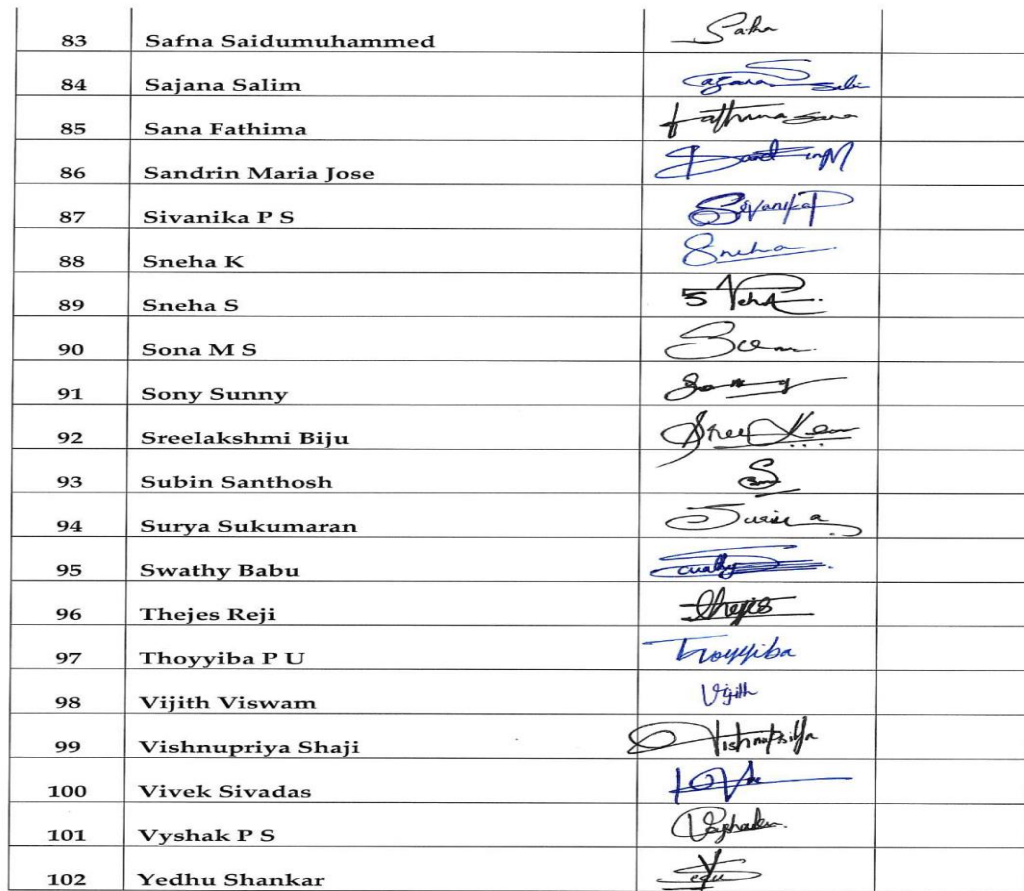 83 Safna Saidumuhammed Safna
84 Sajana Salim
85 Sana Fathima Fathima Sana
86 Sandrin Maria Jose
87 Sivanika P S Sivanika P
88 Sneha K Sneha
89 Sneha S Sneha
90 Sona M S
91 Sony Sunny
92 Sreelakshmi Biju Sree
93 Subin Santhosh
94 Surya Sukumaran Surya
95 Swathy Babu Swathy
96 Thejes Reji Thejes
97 Thoyyiba P U Thoyyiba
98 Vijith Viswam Vijith
99 Vishnupriya Shaji Vishnupriya
100 Vivek Sivadas
101 Vyshak P S
102 Yedhu Shankar